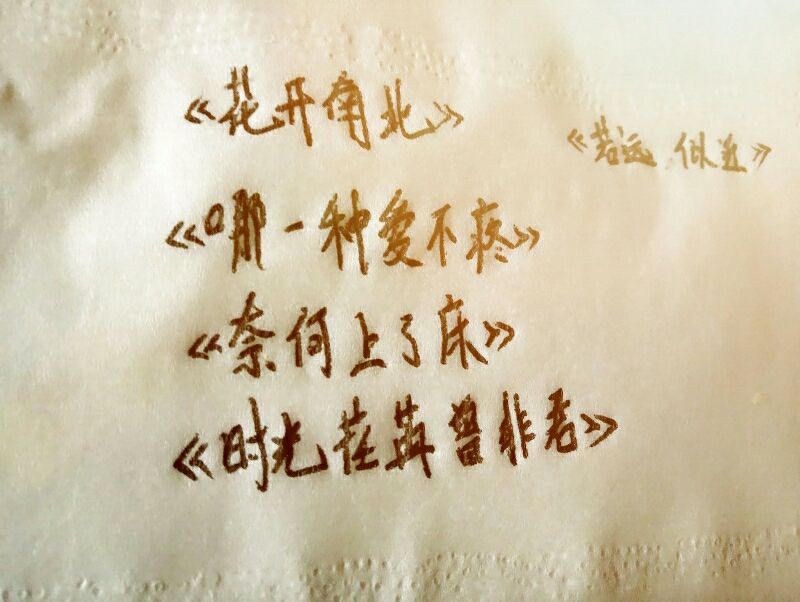 《花开南北》
《若远 似近》
《哪一种爱不疼》
《奈何上了床》
《时光荏苒曾非君》